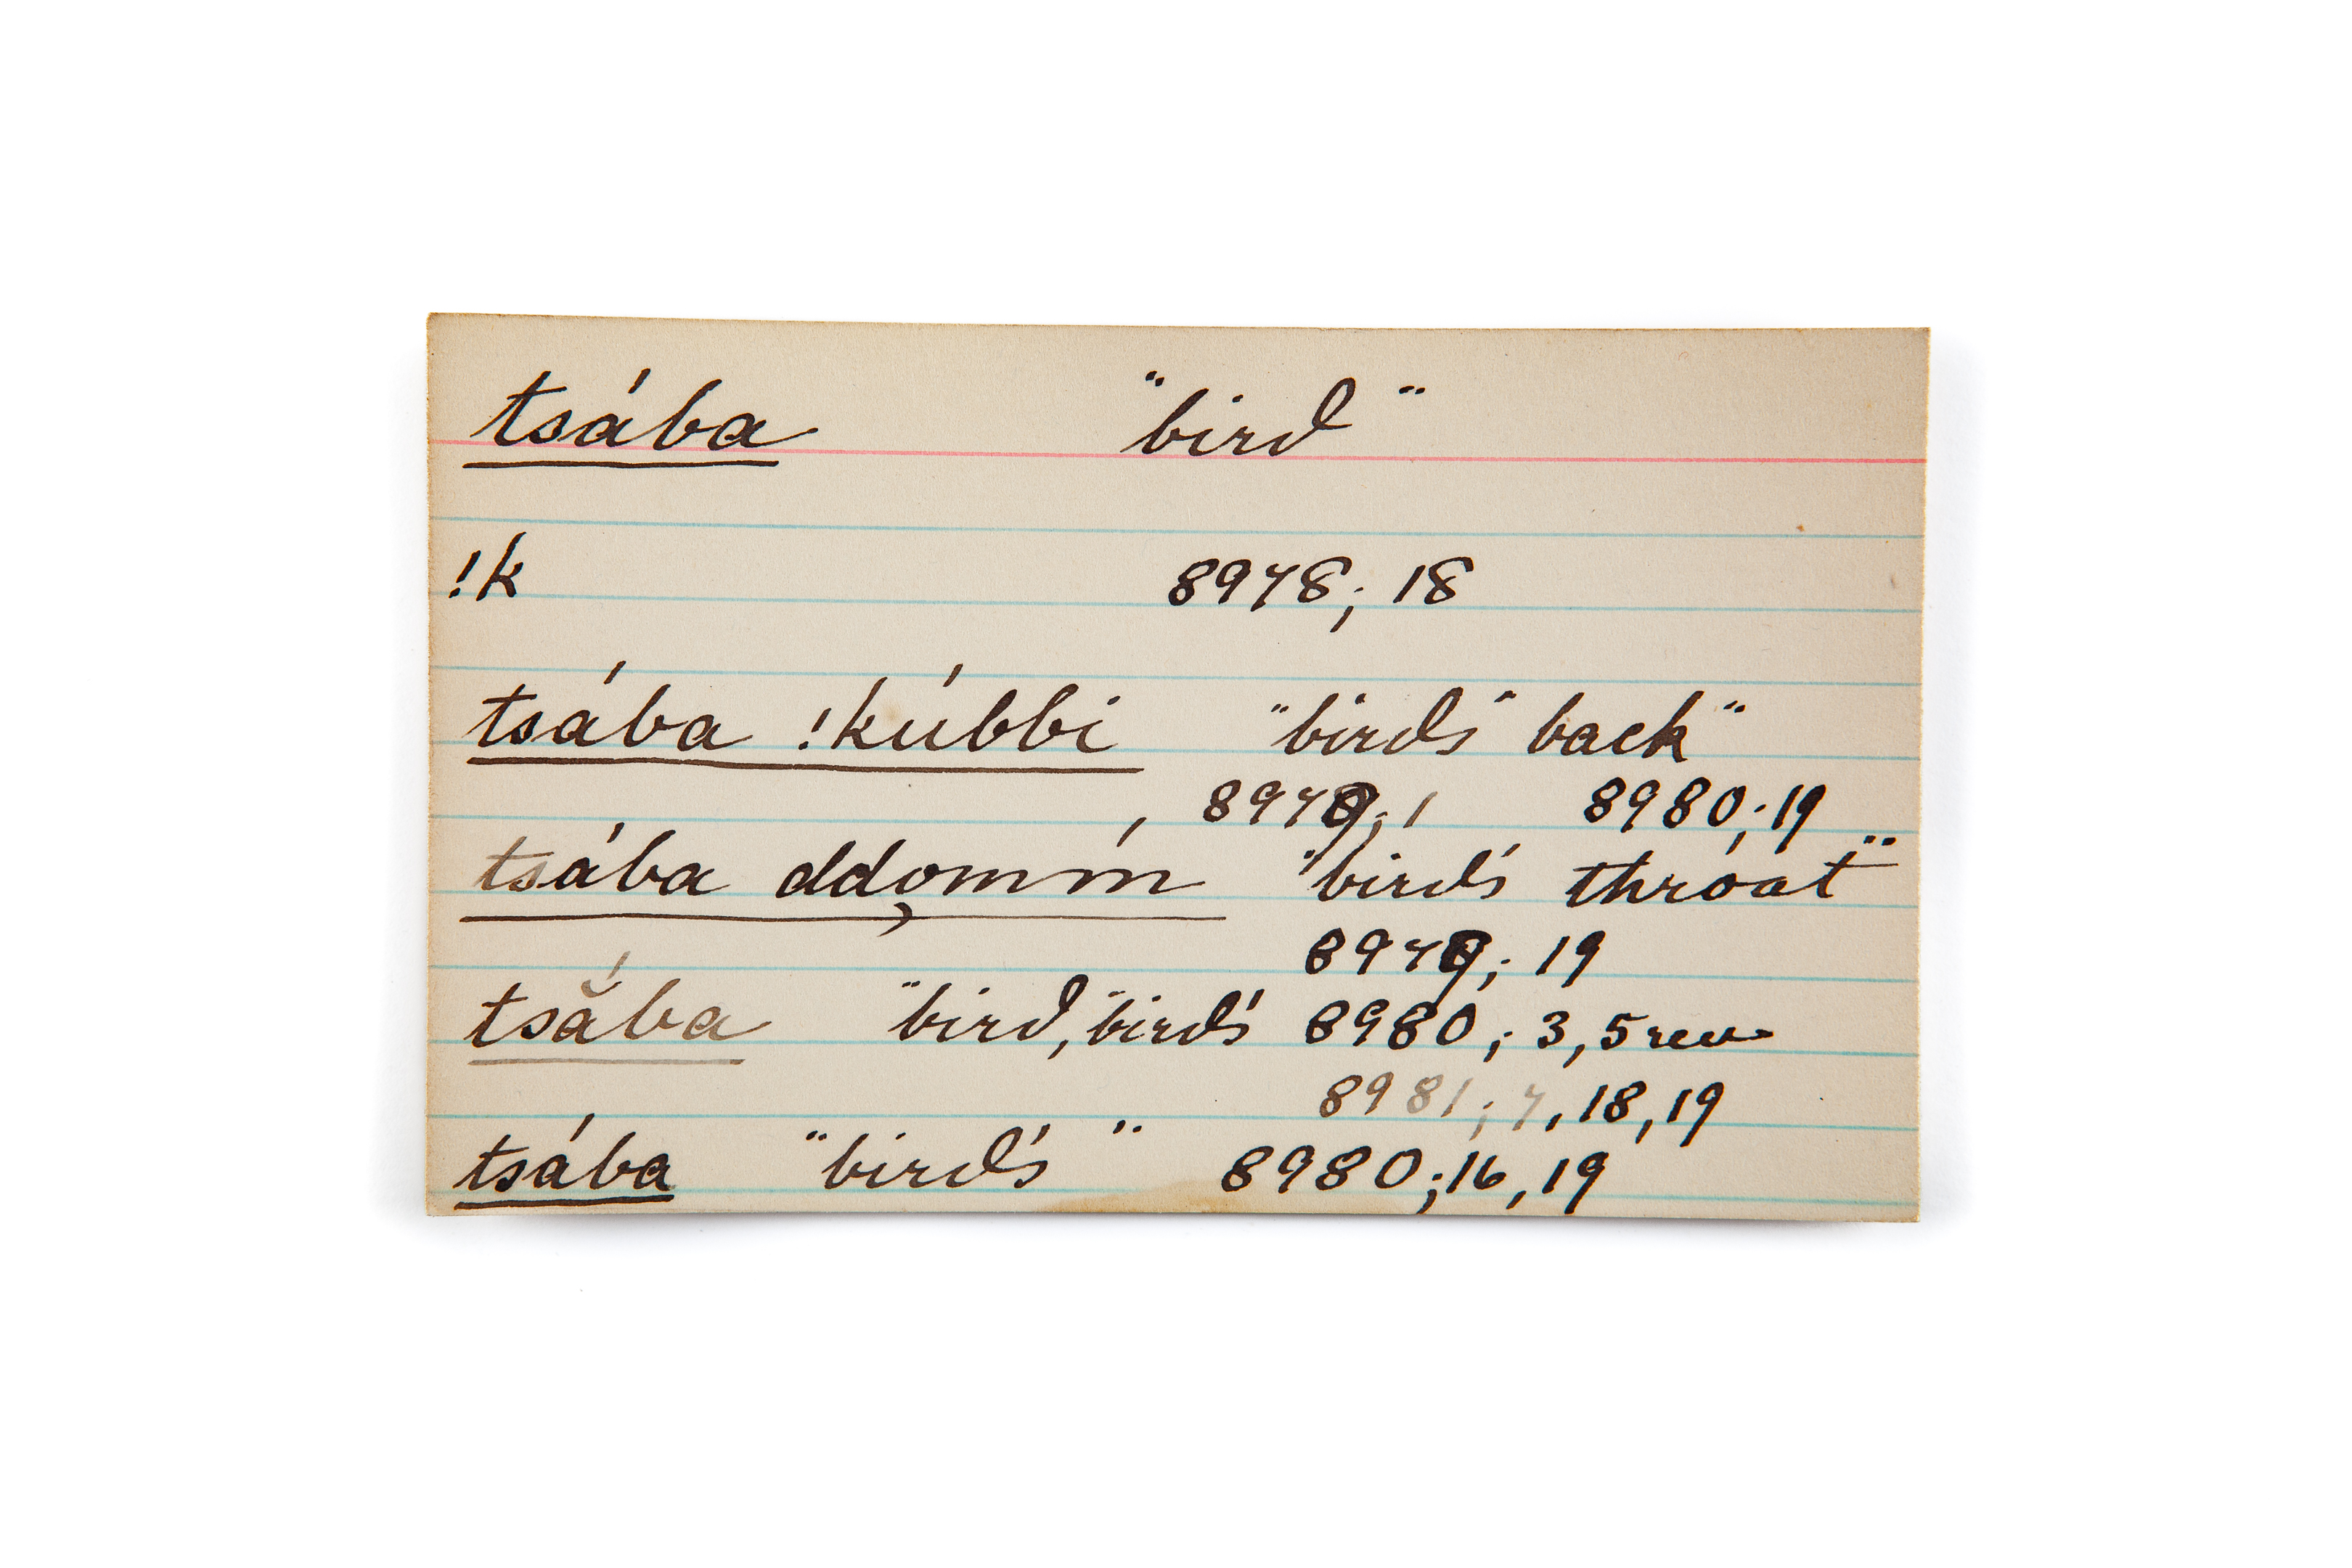 tsába "bird"
!k 8978; 18
tsába !kúbbi "bird's back"
8979; 1 8980; 19
tsába ddo̦mḿ "bird's throat"
8979; 19
tsā̆́ba "bird, bird's 8980; 3, 5 rev
8981; 7, 18, 19
tsába "bird's" 8980; 16, 19